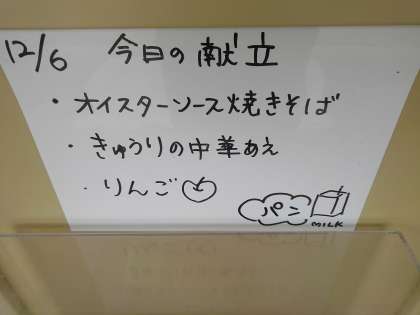 12/6 今日の献立
・オイスターソース焼きそば
・きゅうりの中華あえ
・りんご
パン
MILK